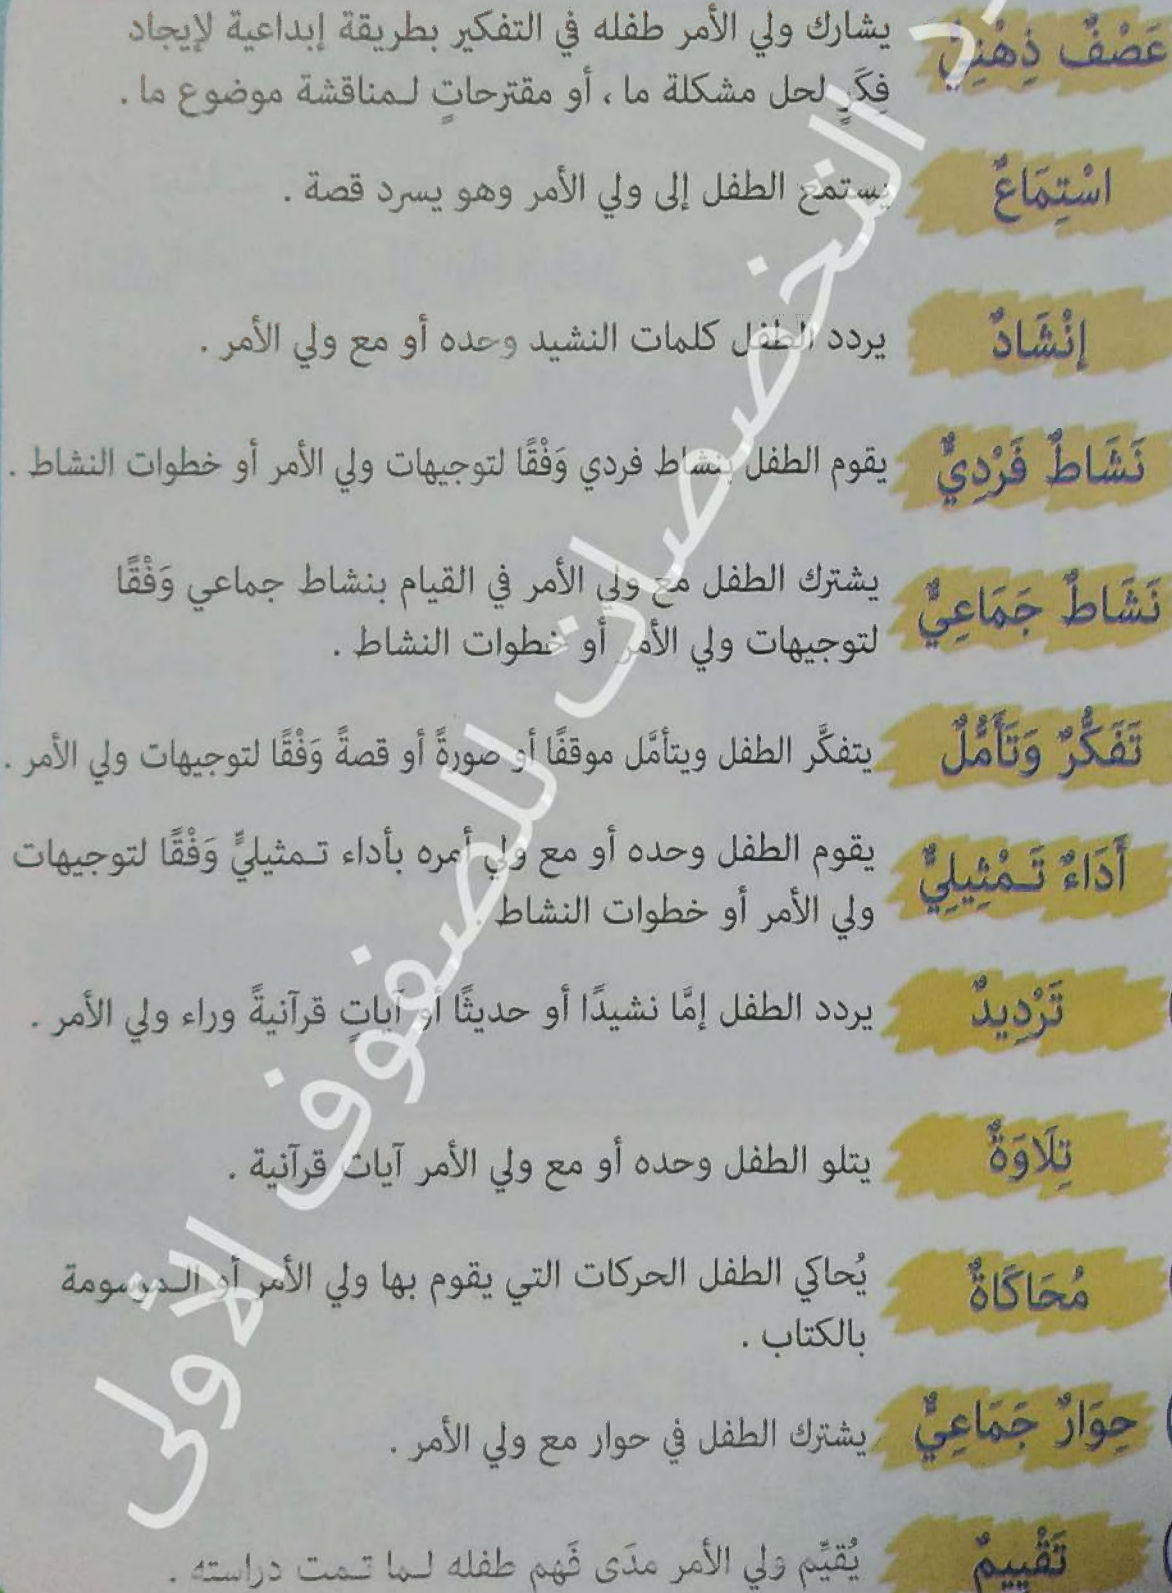 عَصْفٌ ذِهْنِيٌّ
يشارك ولي الأمر طفله في التفكير بطريقة إبداعية لإيجاد
فِكَرٍ لحل مشكلة ما ، أو مقترحاتٍ لـمناقشة موضوع ما .
اسْتِمَاعٌ
يستمع الطفل إلى ولي الأمر وهو يسرد قصة .
إنْشَادٌ
يردد الطفل كلمات النشيد وحده أو مع ولي الأمر .
نَشَاطٌ فَرْدِيٌّ
يقوم الطفل بنشاط فردي وَفْقًا لتوجيهات ولي الأمر أو خطوات النشاط .
نَشَاطٌ جَمَاعِيٌّ
يشترك الطفل مع ولي الأمر في القيام بنشاط جماعي وَفْقًا
لتوجيهات ولي الأمر أو خطوات النشاط .
تَفَكُّرٌ وَتَأَمُّلٌ
يتفكَّر الطفل ويتأمَّل موقفًا أو صورةً أو قصةً وَفْقًا لتوجيهات ولي الأمر .
أَدَاءٌ تَـمْثِيلِيٌّ
يقوم الطفل وحده أو مع ولي أمره بأداء تـمثيليٍّ وَفْقًا لتوجيهات
ولي الأمر أو خطوات النشاط .
تَرْدِيدٌ
يردد الطفل إمَّا نشيدًا أو حديثًا أو آياتٍ قرآنيةً وراء ولي الأمر .
تِلَاوَةٌ
يتلو الطفل وحده أو مع ولي الأمر آيات قرآنية .
مُحَاكَاةٌ
يُحاكي الطفل الحركات التي يقوم بها ولي الأمر أو الـمرسومة
بالكتاب .
حِوَارٌ جَمَاعِيٌّ
يشترك الطفل في حوار مع ولي الأمر .
تَقْيِيمٌ
يُقيِّم ولي الأمر مدَى فَهم طفله لـما تـمت دراسته .
التخصصات للصفوف الأولى